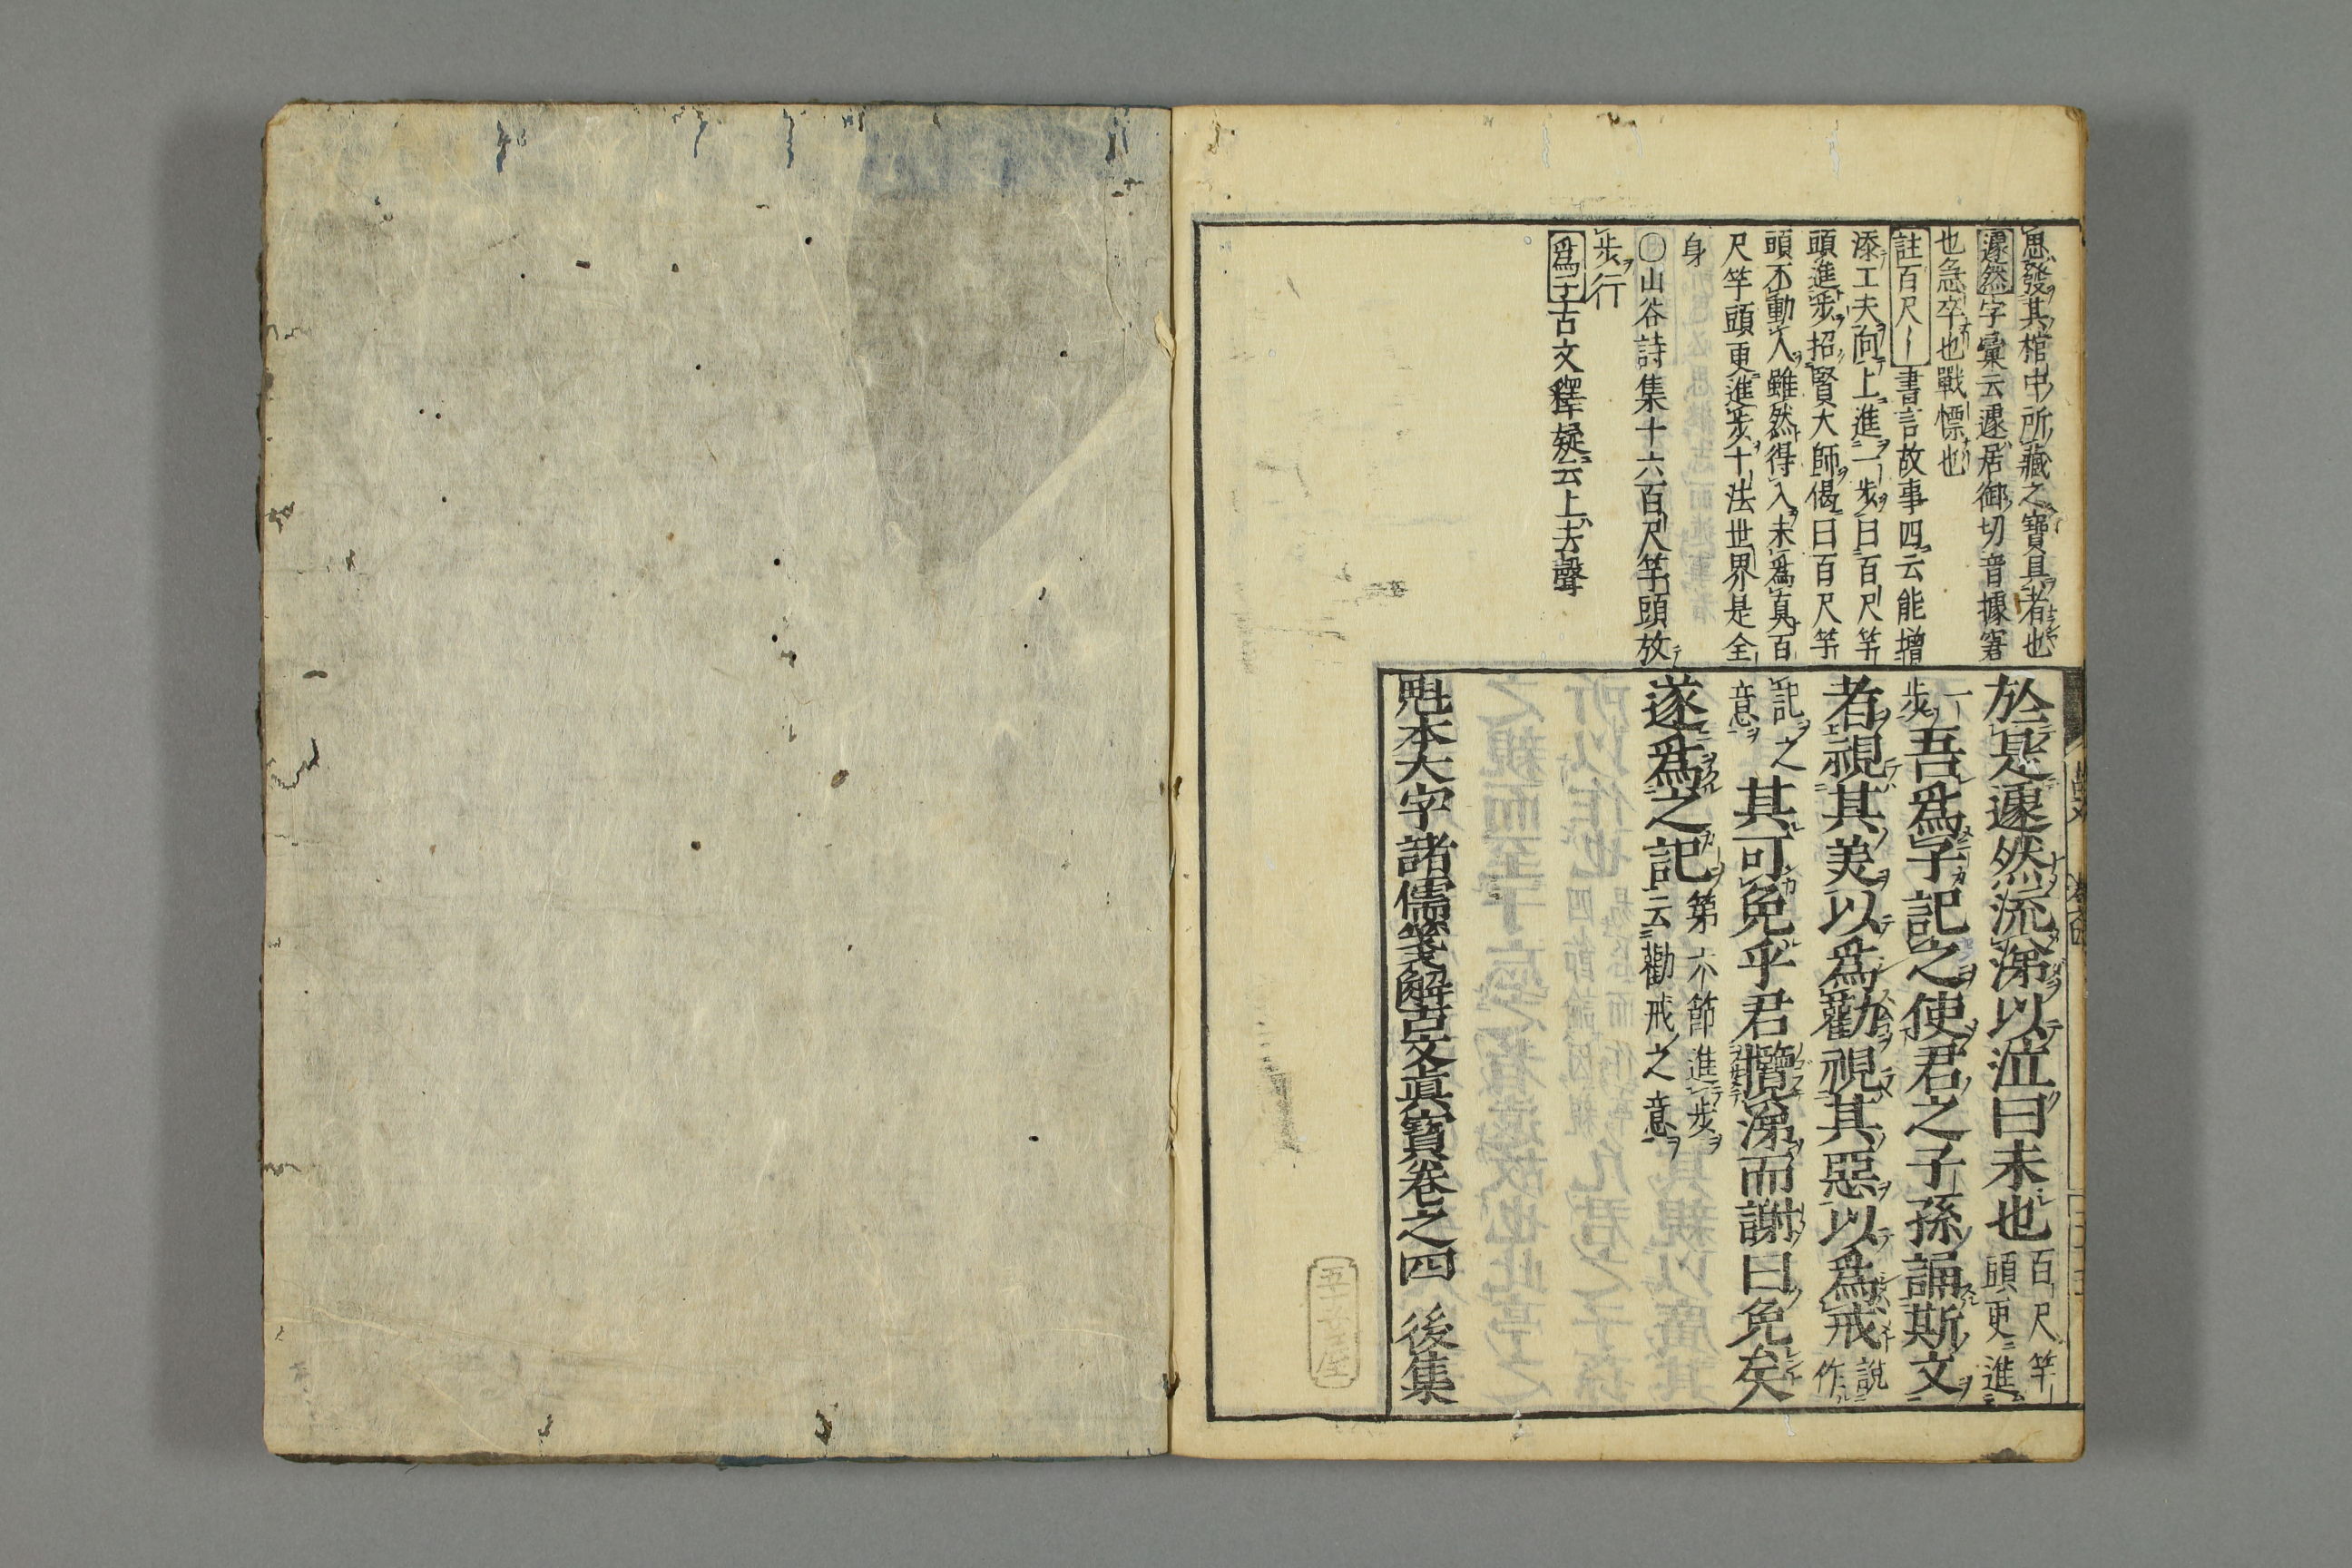 思發其棺中所藏之寶具者也
遽然字彙云遽居御切音據窘
也急卒也戰慓也
註百尺〡書言故事四云能增
添工夫向上進一步曰百尺竿
頭進步招賢大師偈曰百尺竿
頭不動人雖然得入未爲真百
尺竿頭更進步十法世界是全
身
〇山谷詩集十六百尺竿頭放
步行
爲子古文釋疑云上去聲
於是遽然流涕以泣曰未也百尺竿頭更進
一步吾爲子記之使君之子孫誦斯文
者視其美以爲勸視其惡以爲戒說作
記之意其可免乎君攬涕而謝曰免矣
遂爲之記第六節進步云勸戒之意
魁本大字諸儒箋解古文眞寶卷之四 後集